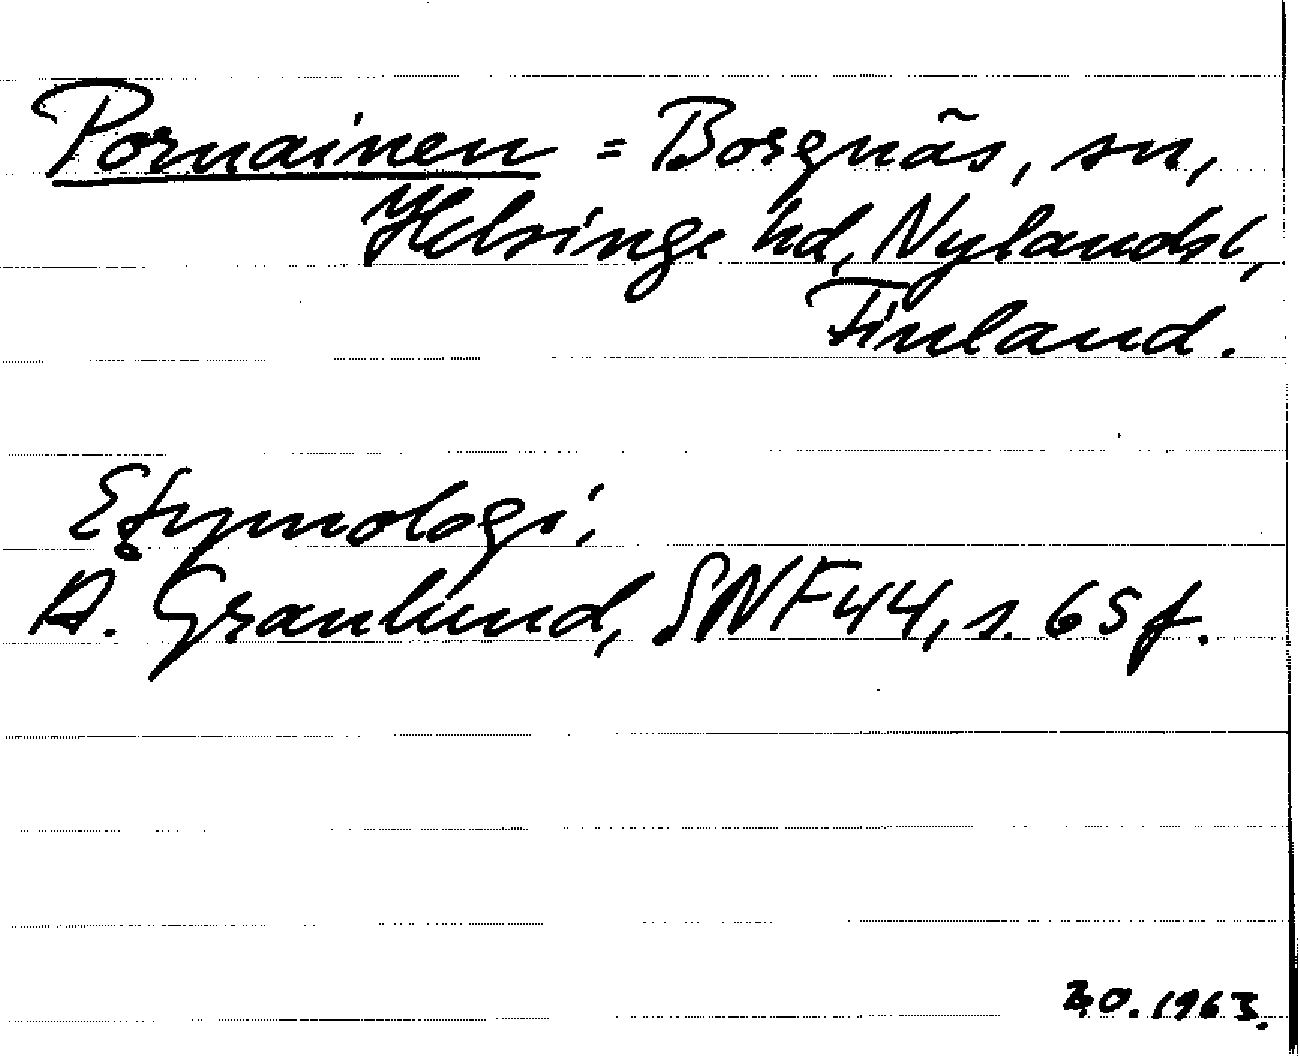 Pornainen = Borgnäs, sn,
Helsinge hd, Nylands l,
Finland.
Etymologi:
Å. Granlund, SNF 44, s. 65 f.
1963.